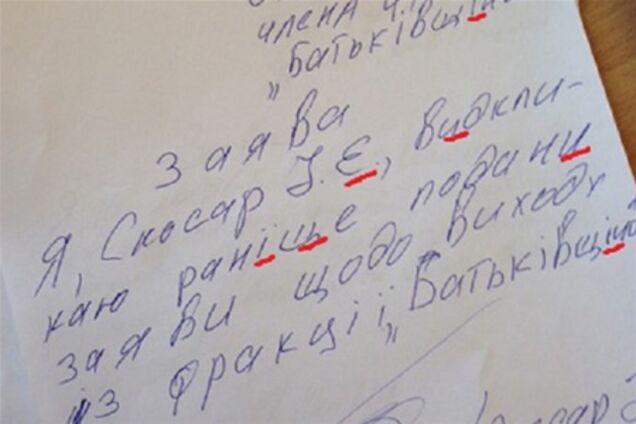 члена
„Батьківщін
заява
Я, Скосар І. Є., видкли-
каю раніще подани
заяви щодо виходу
із фракції „Батьківщіна